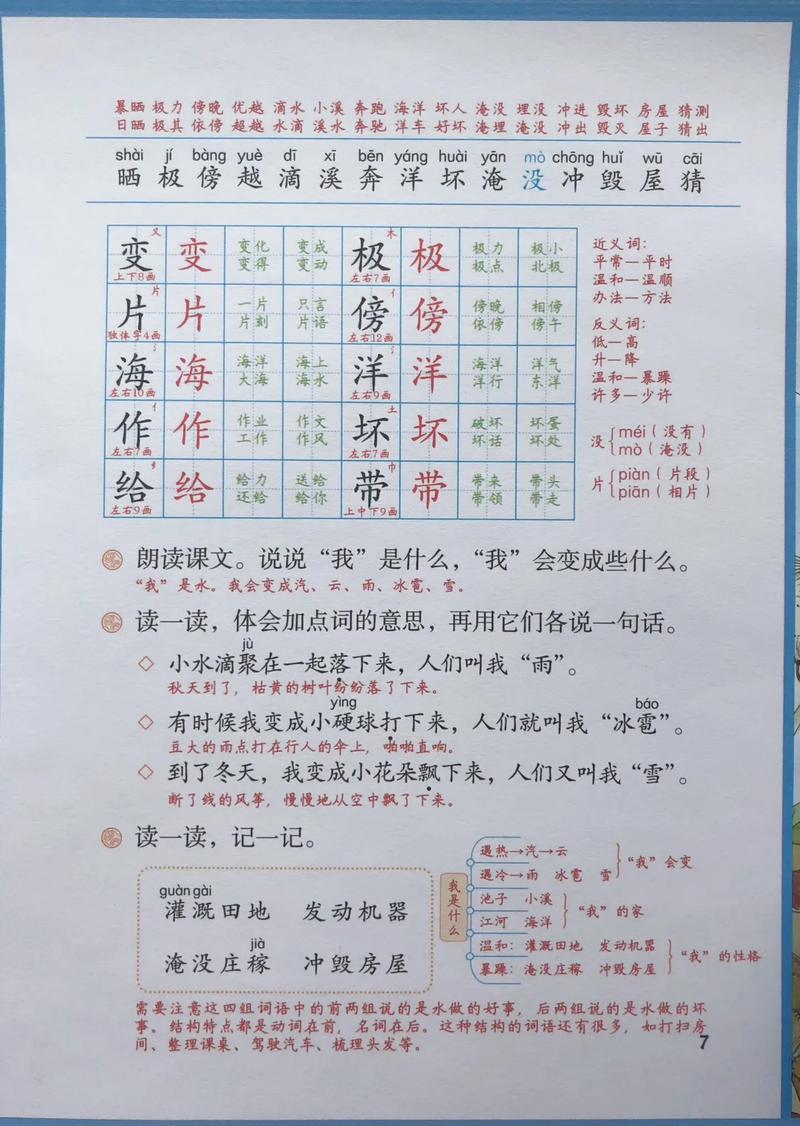 暴晒 极力 傍晚 优越 滴水 小溪 奔跑 海洋 坏人 淹没 埋没 冲进 毁坏 房屋 猜测
日晒 极其 依傍 超越 水滴 溪水 奔驰 洋车 好坏 淹埋 淹没 冲出 毁灭 屋子 猜出
shài jí bàng yuè dī xī bēn yáng huài yān mò chōng huǐ wū cāi
晒 极 傍 越 滴 溪 奔 洋 坏 淹 没 冲 毁 屋 猜
变 又 上下8画 变 变化 变成 极 木 左右7画 极 极力 极小
变得 变动 极点 北极
片 片 独体字4画 片 一片 只言 傍 亻 左右12画 傍 傍晚 相傍
片刻 片语 依傍 傍午
海 氵 左右10画 海 海洋 海上 洋 氵 左右9画 洋 海洋 洋气
大海 海水 洋行 东洋
作 亻 左右7画 作 作业 作文 坏 土 左右7画 坏 破坏 坏蛋
工作 作风 坏话 坏处
给 纟 左右9画 给 给力 送给 带 巾 上中下9画 带 带来 带头
还给 给你 带领 带走
近义词：
平常—平时
温和—温顺
办法—方法
反义词：
低—高
升—降
温和—暴躁
许多—少许
没 { méi（没有）
mò（淹没）
片 { piàn（片段）
piān（相片）
朗读课文。说说“我”是什么，“我”会变成些什么。
“我”是水。我会变成汽、云、雨、冰雹、雪。
读一读，体会加点词的意思，再用它们各说一句话。
jù
◇ 小水滴聚在一起落下来，人们叫我“雨”。
秋天到了，枯黄的树叶纷纷落了下来。
yìng báo
◇ 有时候我变成小硬球打下来，人们就叫我“冰雹”。
豆大的雨点打在行人的伞上，啪啪直响。
◇ 到了冬天，我变成小花朵飘下来，人们又叫我“雪”。
断了线的风筝，慢慢地从空中飘了下来。
读一读，记一记。
guàn gài
灌溉田地 发动机器
jià
淹没庄稼 冲毁房屋
我是什么
遇热→汽→云
遇冷→雨 冰雹 雪
“我”会变
池子 小溪
江河 海洋
“我”的家
温和：灌溉田地 发动机器
暴躁：淹没庄稼 冲毁房屋
“我”的性格
需要注意这四组词语中的前两组说的是水做的好事，后两组说的是水做的坏
事。结构特点都是动词在前，名词在后。这种结构的词语还有很多，如打扫房
间、整理课桌、驾驶汽车、梳理头发等。
7